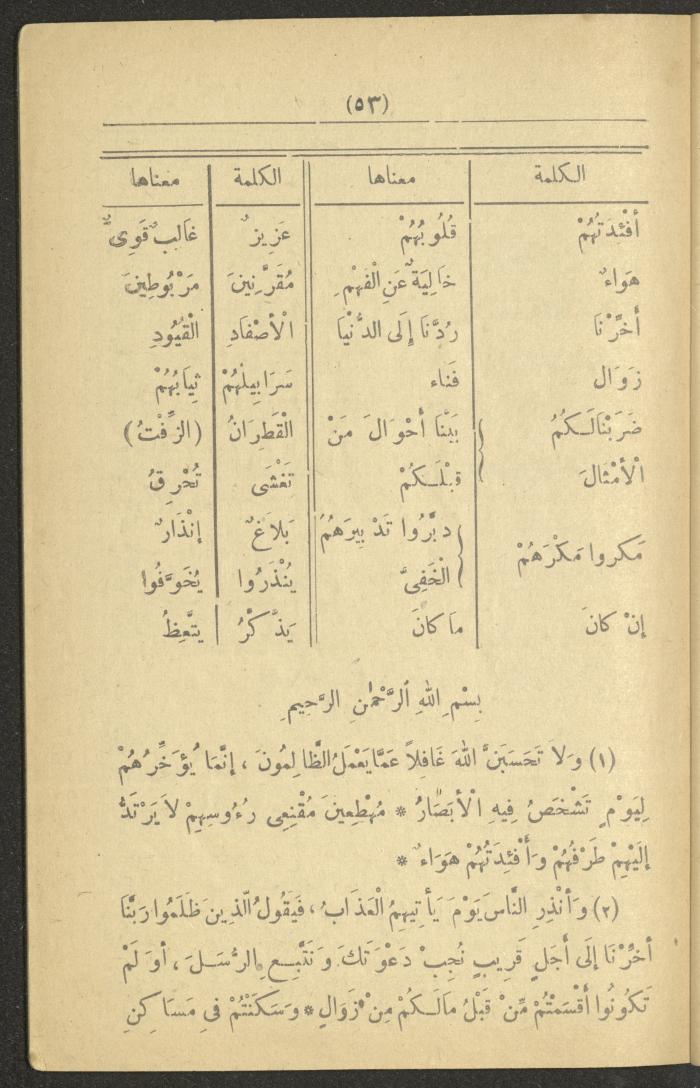 (٥٣)
الكلمة معناها الكلمة معناها
أَفْئِدَتُهُمْ قُلُوبُهُمْ عَزِيزٌ غَالِبٌ قَوِىٌّ
هَوَاءٌ خَالِيَةٌ عَنِ الْفَهْمِ مُقَرَّنِينَ مَرْبُوطِينَ
أَخِّرْنَا رُدَّنَا إِلَى الدُّنْيَا الْأَصْفَادِ الْقُيُودِ
زَوَال فَنَاء سَرَابِيلُهُمْ ثِيَابُهُمْ
ضَرَبْنَا لَكُمُ بَيَّنَّا أَحْوَالَ مَنْ الْقَطِرَانُ (الزِّفْتُ)
الْأَمْثَالَ قَبْلَكُمْ تَغْشَى تُحْرِقُ
مَكَروا مَكْرَهُمْ دبَّرُوا تَدْبِيرَهُمُ بَلَاغٌ إِنْذَارٌ
الْخَفِىَّ يُنْذَرُوا يُخَوَّفُوا
إِنْ كانَ ما كانَ يَذَّكَّرُ يتَّعِظُ
بِسْمِ اللهِ الرَّحْمٰنِ الرَّحِيمِ
(١) وَلَا تَحْسَبَنَّ اللهَ غَافِلاً عَمَّا يَعْمَلُ الظَّالِمُونَ ، إِنَّمَا يُؤَخِّرُهُمْ
لِيَوْمٍ تَشْخَصُ فِيهِ الْأَبْصَارُ * مُهْطِعِينَ مُقْنِعِى رُءُوسِهِمْ لَا يَرْتَدُّ
إِلَيْهِمْ طَرْفُهُمْ وَأَفْئِدَتُهُمْ هَوَاءٌ *
(٢) وَأَنْذِرِ النَّاسَ يَوْمَ يَأْتِيهِمُ الْعَذَابُ ، فَيَقُولُ الَّذِينَ ظَلَمُوا رَبَّنَا
أَخِّرْنَا إِلَى أَجَلٍ قَرِيبٍ نُجِبْ دَعْوَتَكَ وَنَتَّبِعِ الرُّسَلَ ، أَوَ لَمْ
تَكُونُوا أَقْسَمْتُمْ مِّنْ قَبْلُ مالَكُمْ مِنْ زَوَالٍ * وَسَكَنْتُمْ فِى مَسَاكِنِ